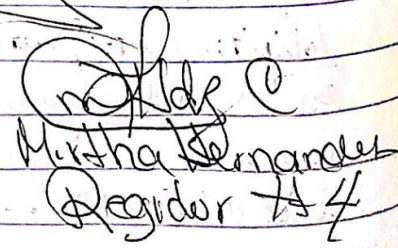 Mirtha Hernandez
Regidor #4